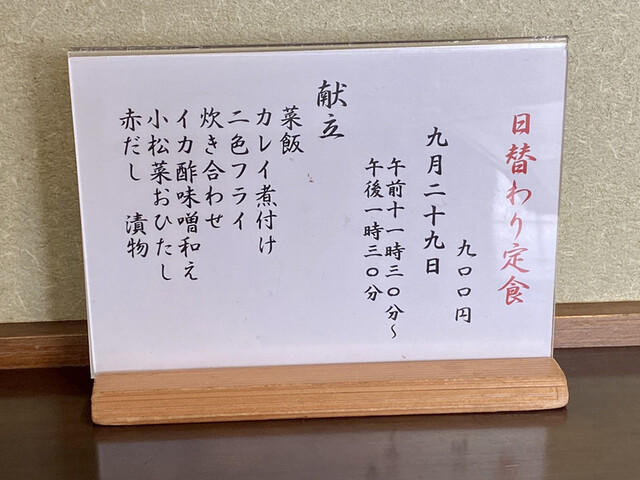 日替わり定食
九〇〇円
九月二十九日
午前十一時三〇分〜
午後一時三〇分
献立
菜飯
カレイ煮付け
二色フライ
炊き合わせ
イカ酢味噌和え
小松菜おひたし
赤だし　漬物